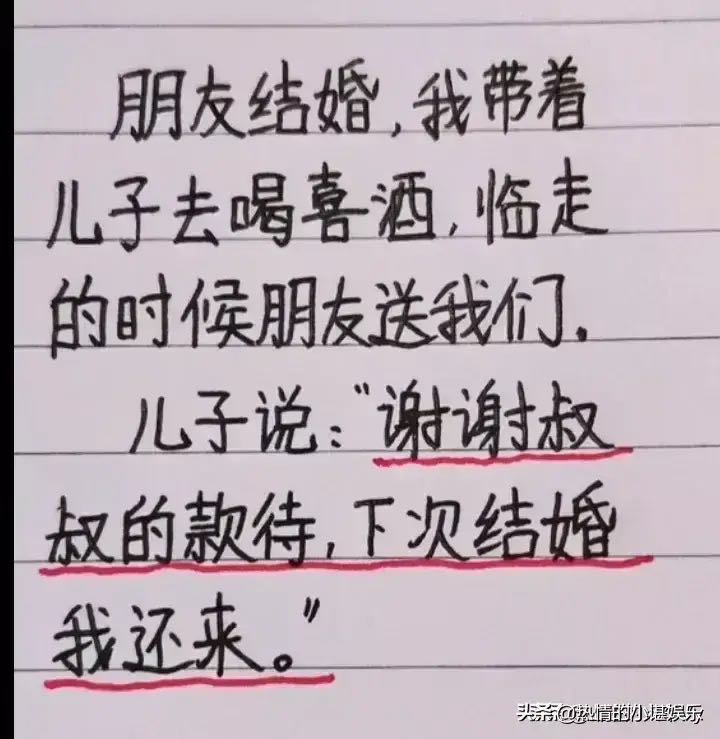 朋友结婚,我带着
儿子去喝喜酒,临走
的时候朋友送我们.
儿子说:“谢谢叔
叔的款待,下次结婚
我还来。”
头条@热情的小堪娱乐